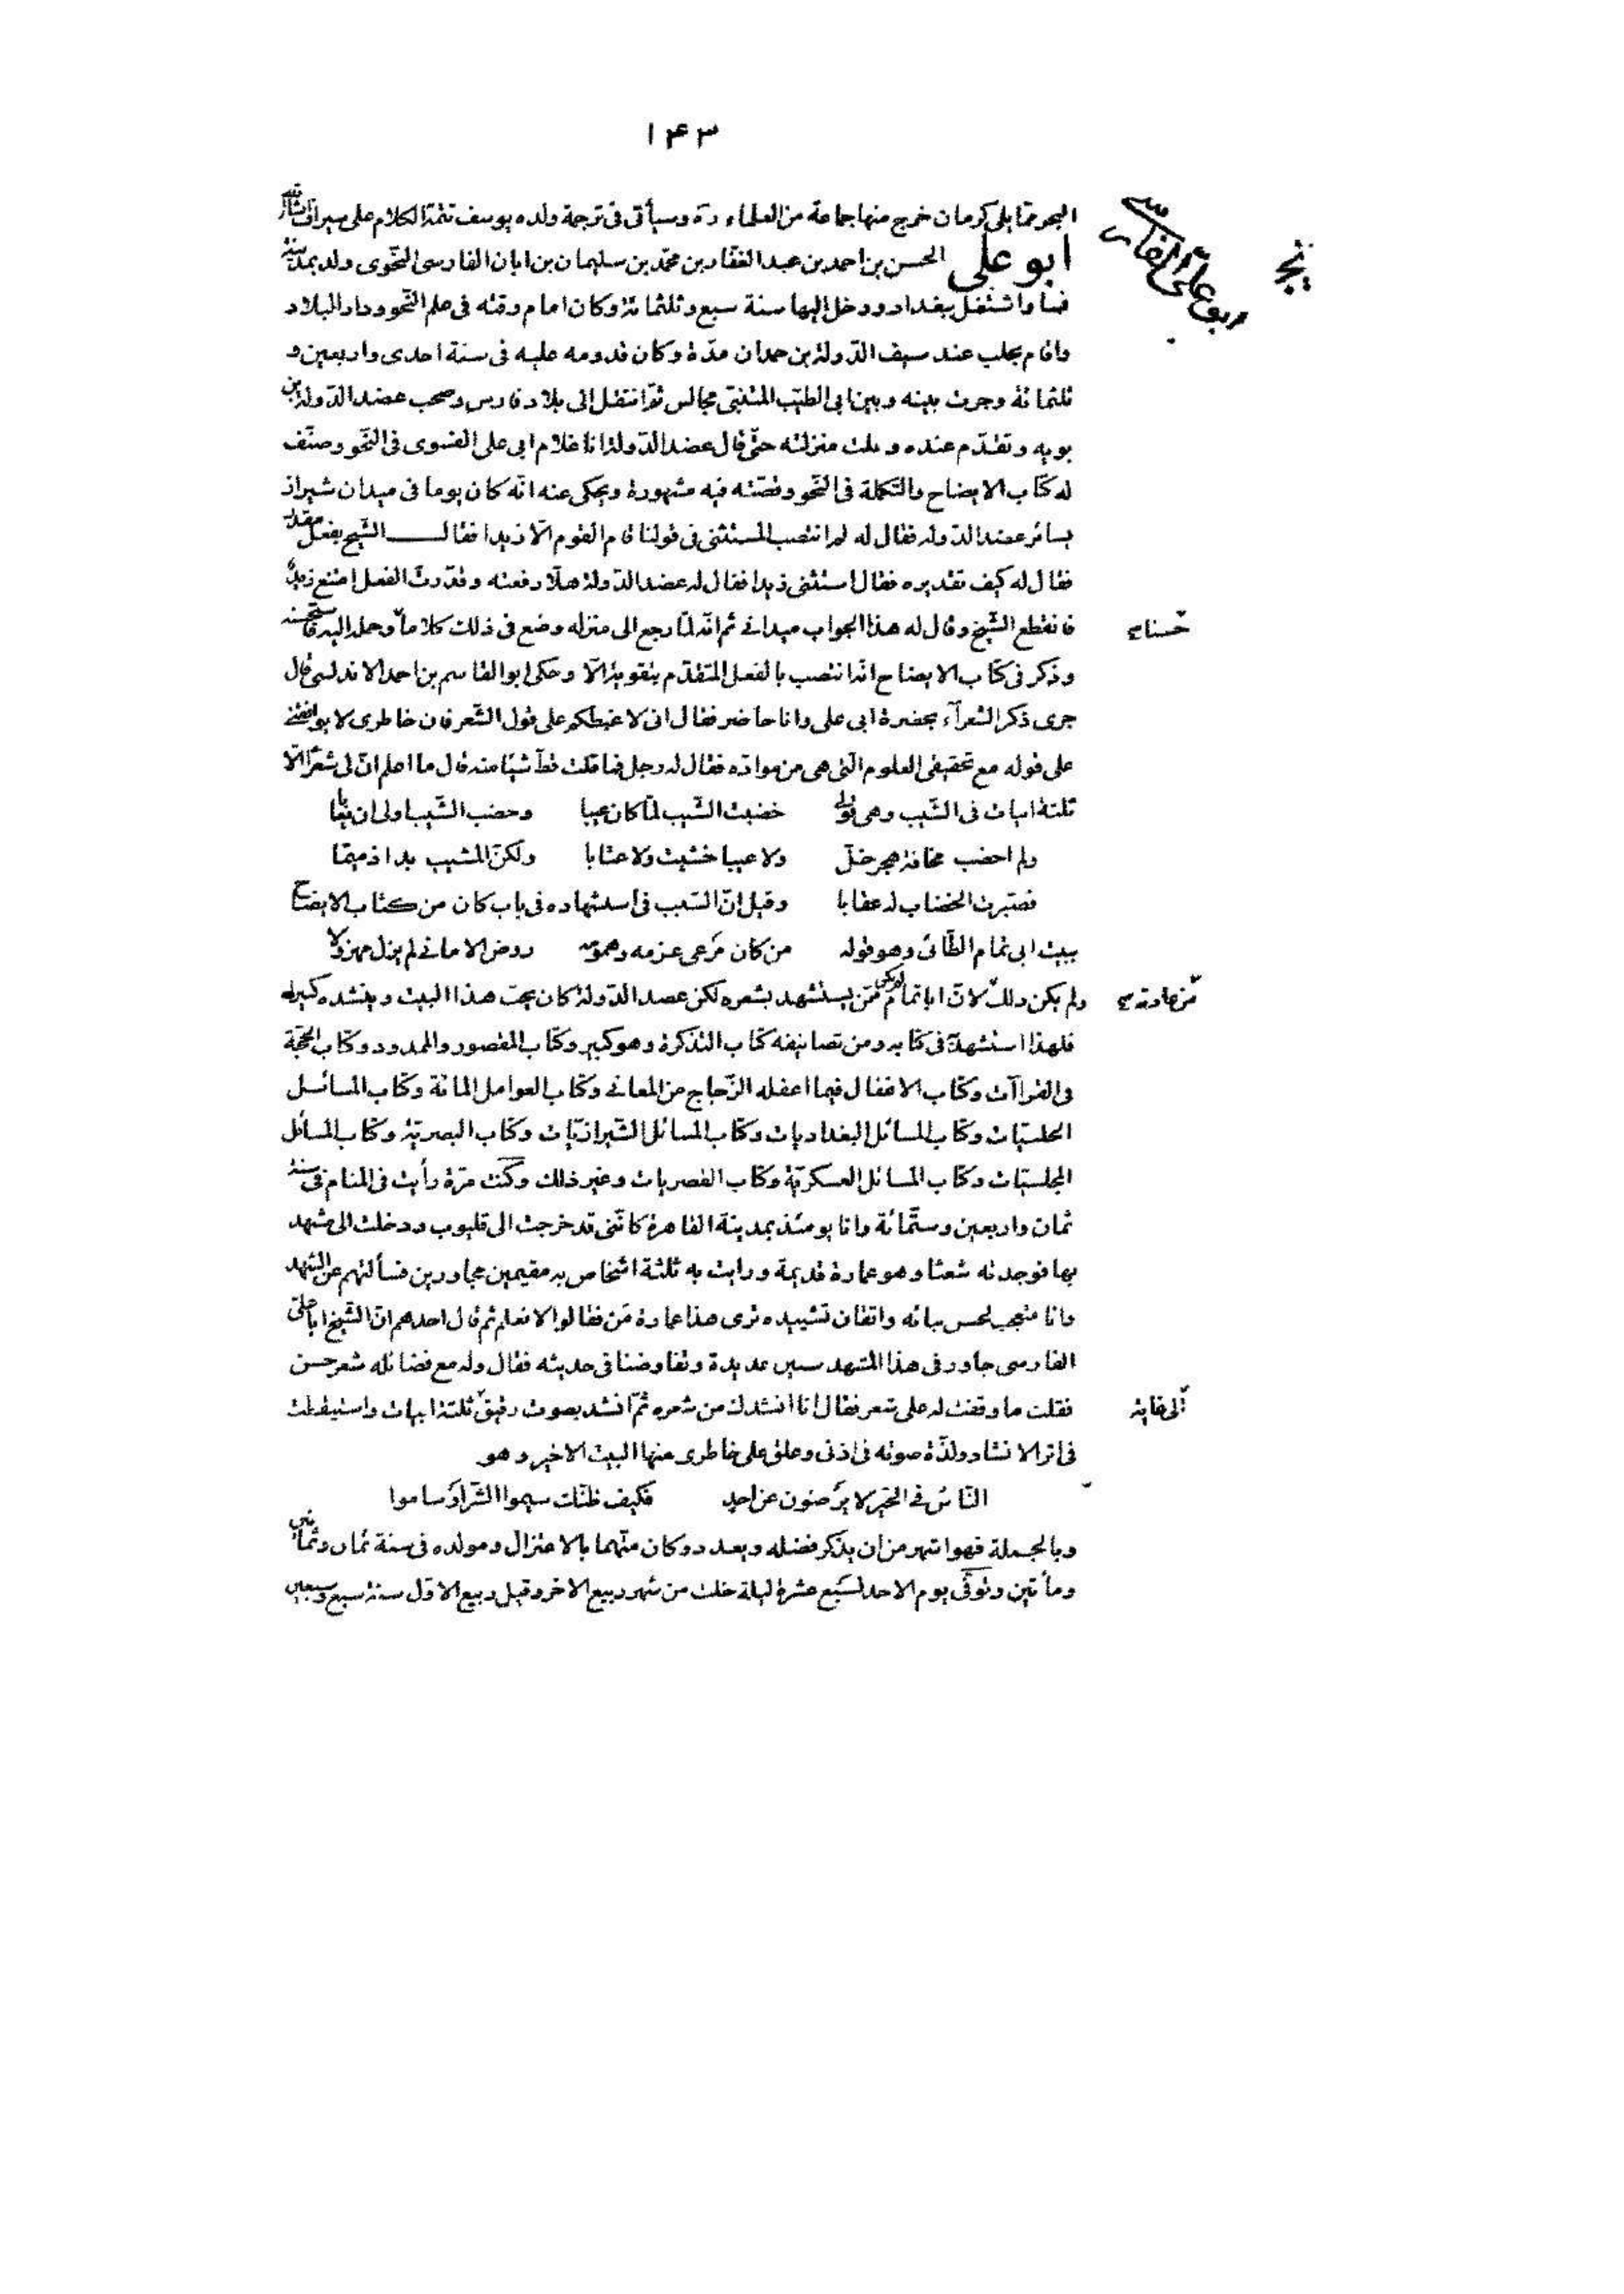 ١۴٣
البحر ممّا يلى كرمان خرج منها جماعة من العلماء ره وسيأتى فى ترجمة ولده يوسف تتمّة الكلام على سيراف
ابو على الحسن بن احمد بن عبد الغفّار بن محمّد بن سليمان بن ابان الفارسى النّحوى ولد بمدينة
ابو علىّ الفارسى
فسا واشتغل ببغداد ودخل إليها سنة سبع وثلثمائة وكان امام وقته فى علم النّحو ودار البلاد
واقام بحلب عند سيف الدّولة بن حمدان مدّة وكان قدومه عليه فى سنة احدى واربعين و
ثلثمائة وجرت بينه وبين ابى الطيّب المتنبّى مجالس ثمّ انتقل الى بلاد فارس وصحب عضد الدّولة بن
بويه وتقدّم عنده وعلت منزلته حتّى قال عضد الدّولة انا غلام ابى على الفسوى فى النّحو وصنّف
له كتاب الايضاح والتّكملة فى النّحو وقصّته فيه مشهورة ويحكى عنه انّه كان يوما فى ميدان شيراز
يسائر عضد الدّوله فقال له لم انتصب المستثنى فى قولنا قام القوم الّا زيدا فقال الشّيخ بفعل مقدّر
فقال له كيف تقديره فقال استثنى زيدا فقال له عضد الدّولة هلّا رفعته وقدّرت الفعل امتنع زيدٌ
فانقطع الشّيخ وقال له هذا الجواب ميدانى ثم انّه لمّا رجع الى منزله وضع فى ذلك كلاماً وحمله اليه فاستحسنه
حسنا صح
وذكر فى كتاب الايضاح انّه انتصب بالفعل المتقدّم بتقوية الّا وحكى ابو القاسم بن احمد الاندلسى قال
جرى ذكر الشعرآء بحضرة ابى على وانا حاضر فقال انى لاغبطكم على قول الشّعر فان خاطرى لا يوافقنى
على قوله مع تحقيقى العلوم الّتى هى من موادّه فقال له رجل فما قلت قطّ شيئا منه قال ما اعلم انّ لى شعرًا الّا
ثلثة ابيات فى الشّيب وهى قولى خضبت الشّيب لمّا كان عيبا وخضب الشّيب اولى ان يعابا
ولم اخضب مخافة هجر خلّ ولا عيبا خشيت ولا عتابا ولكنّ المشيب بدا ذميمًا
فصيّرت الخضاب له عقابا وقيل انّ السّبب فى استشهاده فى باب كان من كتاب الايضاح
ببيت ابى تمام الطّائى وهو قوله من كان مَرعى عزمه وهمومه روض الامانى لم يزل مهزولا
ولم يكن ذلك لانّ ابا تمام لم يكن ممّن يستشهد بشعره لكن عضد الدّولة كان يحبّ هذا البيت وينشده كثيرا
فلهذا استشهد به فى كتابه ومن تصانيفه كتاب التذكرة وهو كبير وكتاب المقصور والممدود وكتاب الحجّة
فى القراآت وكتاب الاغفال فيما اغفله الزّجاج من المعانى وكتاب العوامل المائة وكتاب المسائل
الحلبيّات وكتاب المسائل البغداديات وكتاب المسائل الشّيرازيّات وكتاب البصريّة وكتاب المسائل
المجلسيّات وكتاب المسائل العسكريّة وكتاب القصريات وغير ذلك وكنت مرّة رأيت فى المنام فى سنة
ثمان واربعين وستّمائة وانا يومئذ بمدينة القاهرة كانّنى قد خرجت الى قليوب ودخلت الى مشهد
بها فوجدته شعثا وهو عمارة قديمة ورايت به ثلثة اشخاص به مقيمين مجاورين فسألتهم عن المشهد
وانا متعجب لحسن بنائه واتقان تشييده ترى هذا عمارة مَن فقالوا لا نعلم ثم قال احدهم انّ الشّيخ ابا علىّ
الفارسى جاور فى هذا المشهد سنين عديدة وتفاوضنا فى حديثه فقال وله مع فضائله شعر حسن
فقلت ما وقفت له على شعر فقال انا انشدك من شعره ثمّ انشد بصوت رقيق ثلثة ابيات واستيقظت
الى غاية
فى اثر الانشاد ولذّة صوته فى اذنى وعلق على خاطرى منها البيت الاخير وهو
النّاسُ فى الخير لا يرضون عن احدٍ فكيف ظنّك سيموا الشّر او ساموا
وبالجملة فهو اشهر من ان يذكر فضله ويعدد وكان متّهما بالاعتزال ومولده فى سنة ثمان وثمانين
ومأتين وتوفّى يوم الاحد لسبع عشرة ليلة خلت من شهر ربيع الاخر وقيل ربيع الاوّل سنة سبع وسبعين